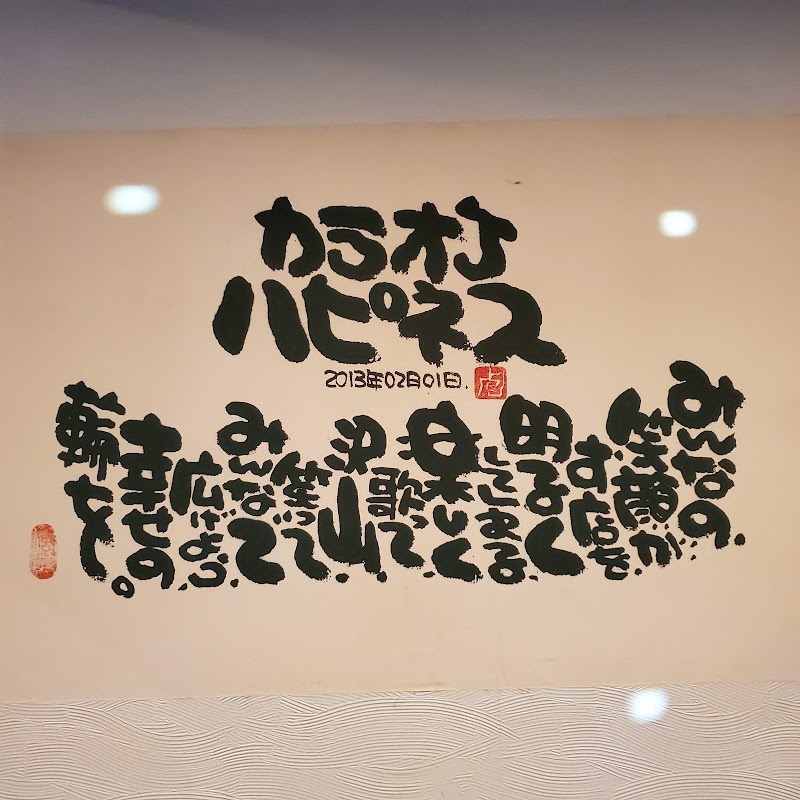 カラオケ
ハピネス
2013年02月01日.
みんなの
笑顔が
お店を
明るく
楽しく
歌って
沢山
笑って
みんなで
広げよう
幸せの
輪を。